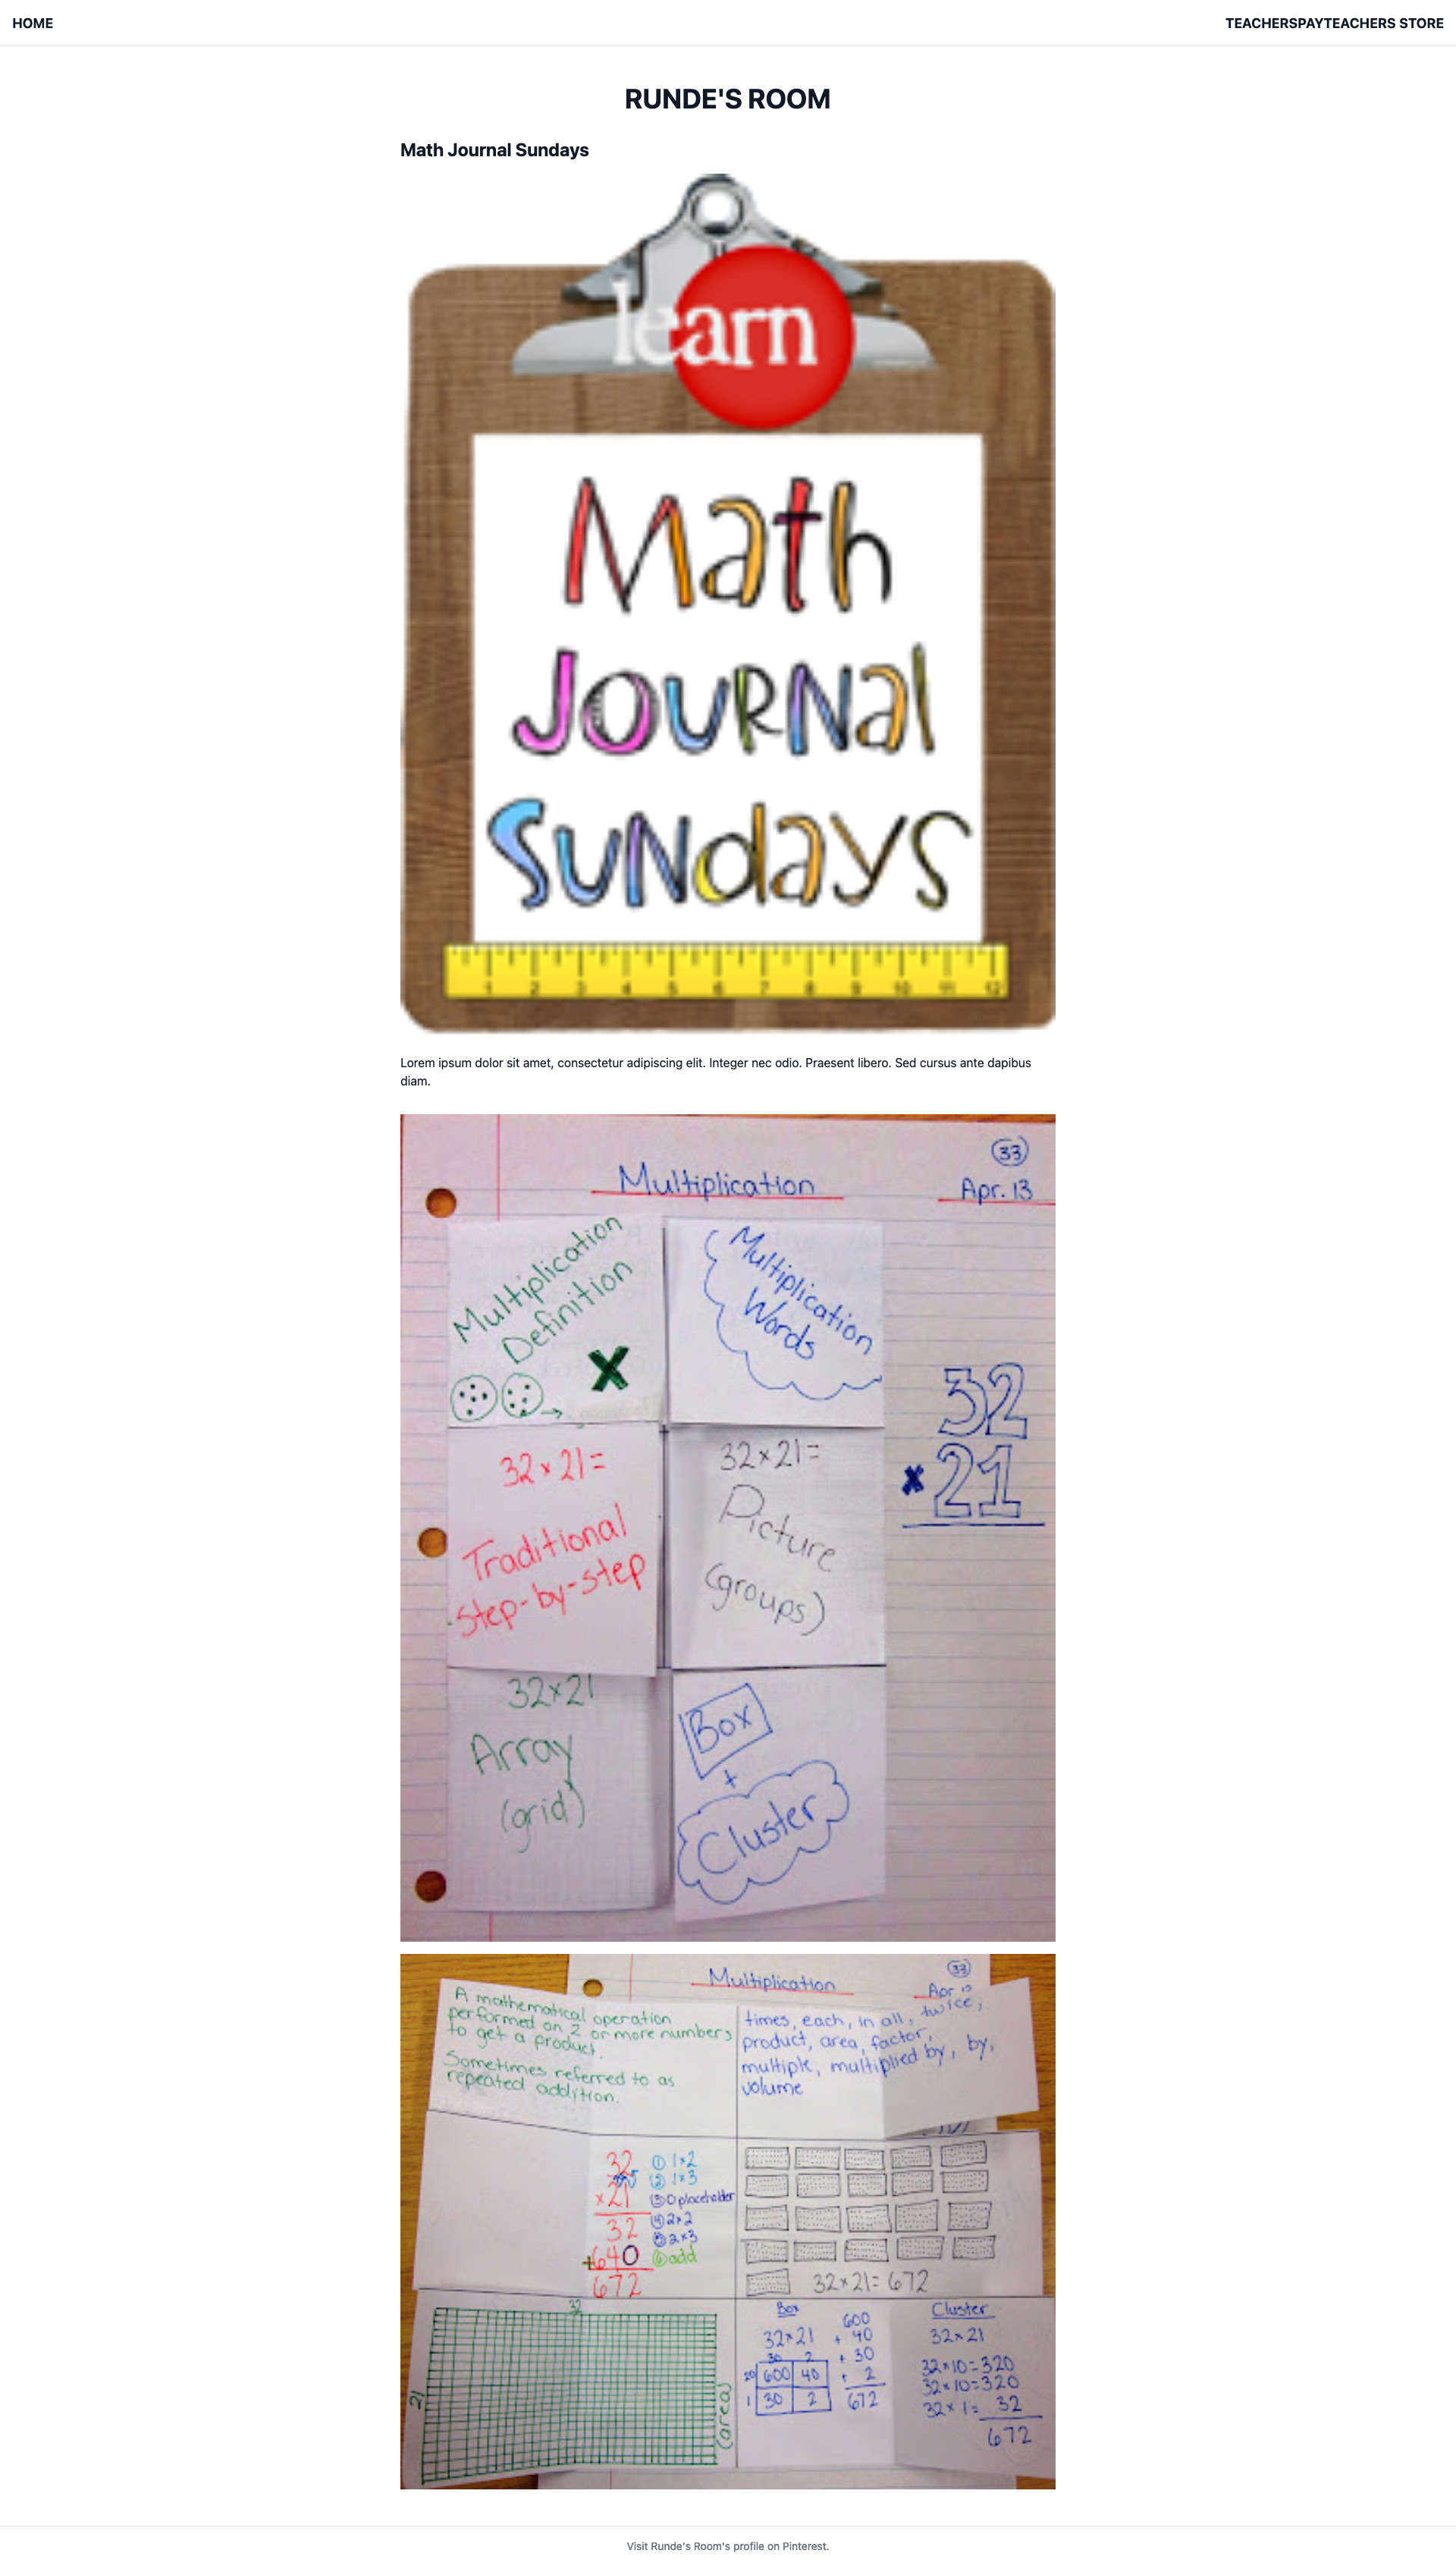 HOME
TEACHERSPAYTEACHERS STORE
RUNDE'S ROOM
Math Journal Sundays
learn
Math
Journal
Sundays
1 2 3 4 5 6 7 8 9 10 11 12
Lorem ipsum dolor sit amet, consectetur adipiscing elit. Integer nec odio. Praesent libero. Sed cursus ante dapibus
diam.
33
Multiplication
Apr. 13
Multiplication
Definition
X
Multiplication
Words
32
x 21
32 x 21 =
Traditional
step-by-step
32 x 21 =
Picture
(groups)
32 x 21
Array
(grid)
Box
+
Cluster
Multiplication
33
Apr 13
A mathematical operation
performed on 2 or more numbers
to get a product.
Sometimes referred to as
repeated addition.
times, each, in all, twice,
product, area, factor,
multiple, multiplied by, by,
volume
32
x 21
32
+640
672
① 1x2
② 1x3
③ 0 placeholder
④ 2x2
⑤ 2x3
⑥ add
32 x 21 = 672
32
21
(area)
Box
32 x 21
30 2
20 600 40
1 30 2
600
+ 40
+ 30
+ 2
672
Cluster
32 x 21
32 x 10 = 320
32 x 10 = 320
32 x 1 = 32
672
Visit Runde's Room's profile on Pinterest.